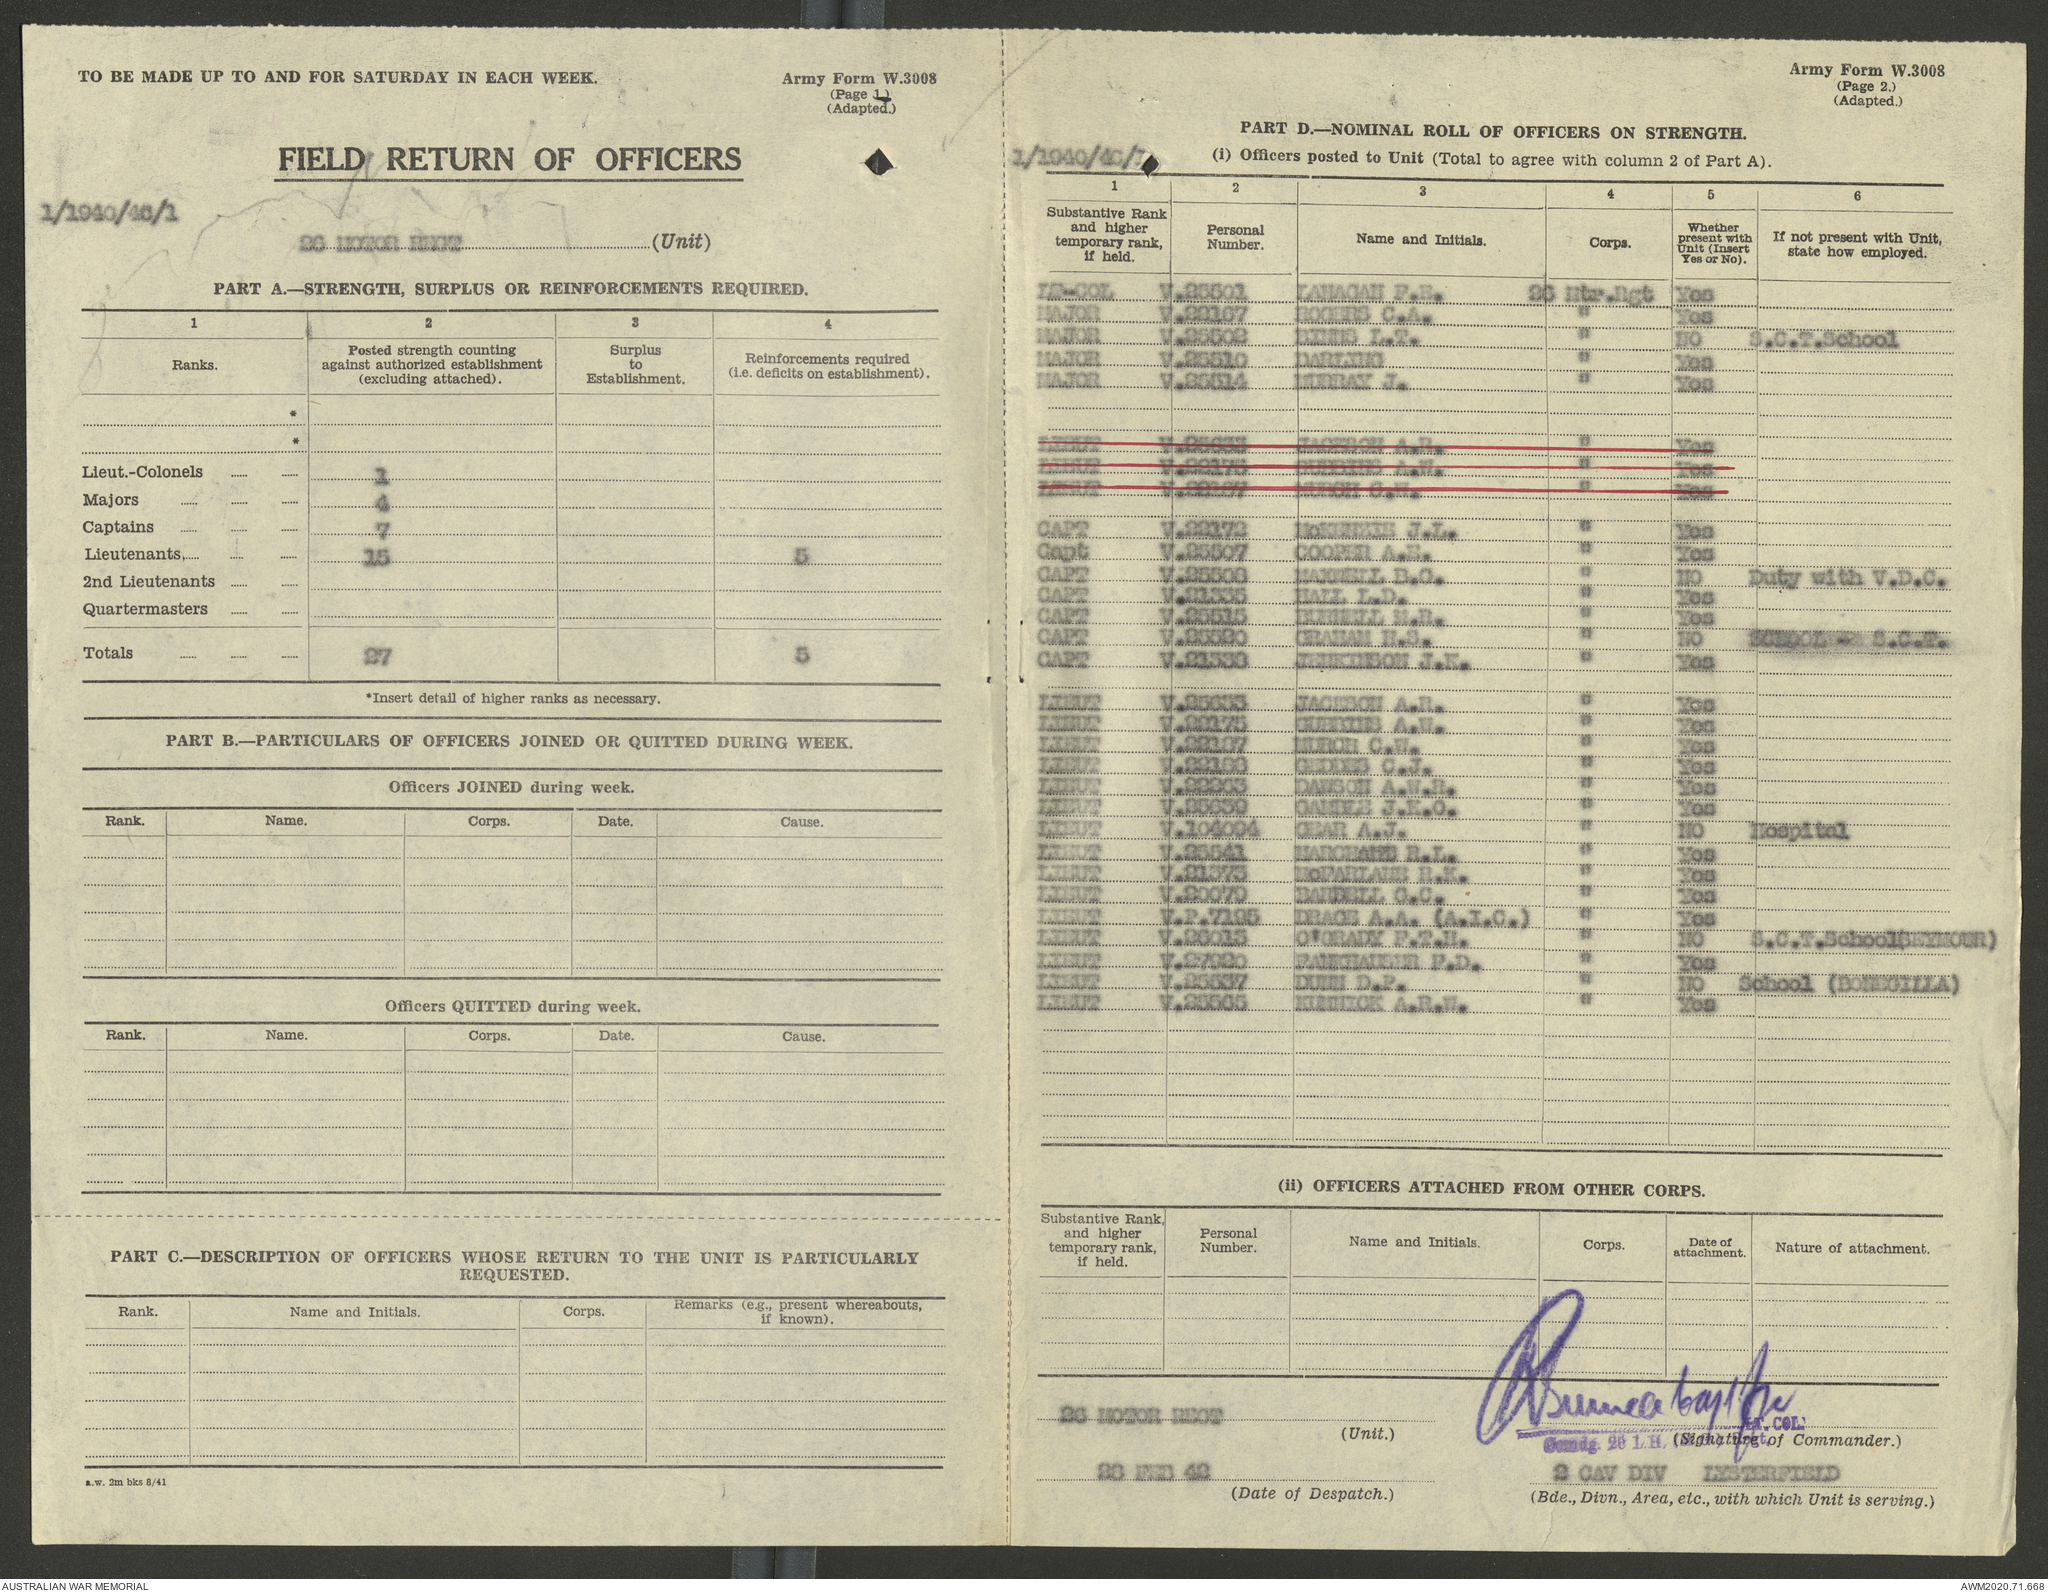 TO BE MADE UP TO AND FOR SATURDAY IN EACH WEEK.
Army Form W.3008
(Page 1.)
(Adapted.)
FIELD RETURN OF OFFICERS
1/1940/46/1
26 MOTOR REGT (Unit)
PART A.—STRENGTH, SURPLUS OR REINFORCEMENTS REQUIRED.
1 2 3 4
Ranks. Posted strength counting against authorized establishment (excluding attached). Surplus to Establishment. Reinforcements required (i.e. deficits on establishment).
*
*
Lieut.-Colonels 1
Majors 4
Captains 7
Lieutenants 15 5
2nd Lieutenants
Quartermasters
Totals 27 5
*Insert detail of higher ranks as necessary.
PART B.—PARTICULARS OF OFFICERS JOINED OR QUITTED DURING WEEK.
Officers JOINED during week.
Rank. Name. Corps. Date. Cause.
Officers QUITTED during week.
Rank. Name. Corps. Date. Cause.
PART C.—DESCRIPTION OF OFFICERS WHOSE RETURN TO THE UNIT IS PARTICULARLY
REQUESTED.
Rank. Name and Initials. Corps. Remarks (e.g., present whereabouts, if known).
a.w. 2m bks 8/41
Army Form W.3008
(Page 2.)
(Adapted.)
PART D.—NOMINAL ROLL OF OFFICERS ON STRENGTH.
1/1940/46/1
(i) Officers posted to Unit (Total to agree with column 2 of Part A).
1 2 3 4 5 6
Substantive Rank and higher temporary rank, if held. Personal Number. Name and Initials. Corps. Whether present with Unit (Insert Yes or No). If not present with Unit, state how employed.
LT-COL V.25501 LANAGAN F.R. 26 Mtr.Rgt Yes
MAJOR V.22167 ROGERS C.A. " Yes
MAJOR V.25502 L.T. " NO S.C.T.School
MAJOR V.25510 DARLING " Yes
MAJOR V.25514 MURRAY J. " Yes
LIEUT V.25633 JACKSON A.R. " Yes
LIEUT V.22175 A.W. " Yes
LIEUT V.22167 MURCH C.W. " Yes
CAPT V.22172 McKENZIE J.L. " Yes
Capt V.25507 COOPER A.E. " Yes
CAPT V.25508 MAXWELL D.C. " NO Duty with V.D.C.
CAPT V.21335 HALL L.D. " Yes
CAPT V.25515 " Yes
CAPT V.25520 GRAHAM H.S. " NO SCHOOL - S.C.T.
CAPT V.21338 JENKINSON J.K. " Yes
LIEUT V.25633 JACKSON A.R. " Yes
LIEUT V.22175 A.W. " Yes
LIEUT V.22167 MURCH C.W. " Yes
LIEUT GEDDES C.J. " Yes
LIEUT V.22263 DAWSON A.W.R. " Yes
LIEUT V.25639 J.K.C. " Yes
LIEUT V.104094 GEAR A.J. " NO Hospital
LIEUT V.25541 R.L. " Yes
LIEUT V.21373 McFARLANE R.K. " Yes
LIEUT V.20079 C.C. " Yes
LIEUT V.P.7195 DRACE A.A. (A.I.C.) " Yes
LIEUT V.26015 O'GRADY F.T.H. " NO S.C.T.School(SEYMOUR)
LIEUT V.27920 FANKHAUSER F.D. " Yes
LIEUT V.25537 DUNN D.P. " NO School (BONEGILLA)
LIEUT V.25565 A.R.W. " Yes
(ii) OFFICERS ATTACHED FROM OTHER CORPS.
Substantive Rank, and higher temporary rank, if held. Personal Number. Name and Initials. Corps. Date of attachment. Nature of attachment.
26 MOTOR REGT
(Unit.)
Capt for
LT. COL.
Comdg. 26 L.H. Regt.
(Signature of Commander.)
28 FEB 42
(Date of Despatch.)
2 CAV DIV LYSTERFIELD
(Bde., Divn., Area, etc., with which Unit is serving.)
AUSTRALIAN WAR MEMORIAL
AWM2020.71.668